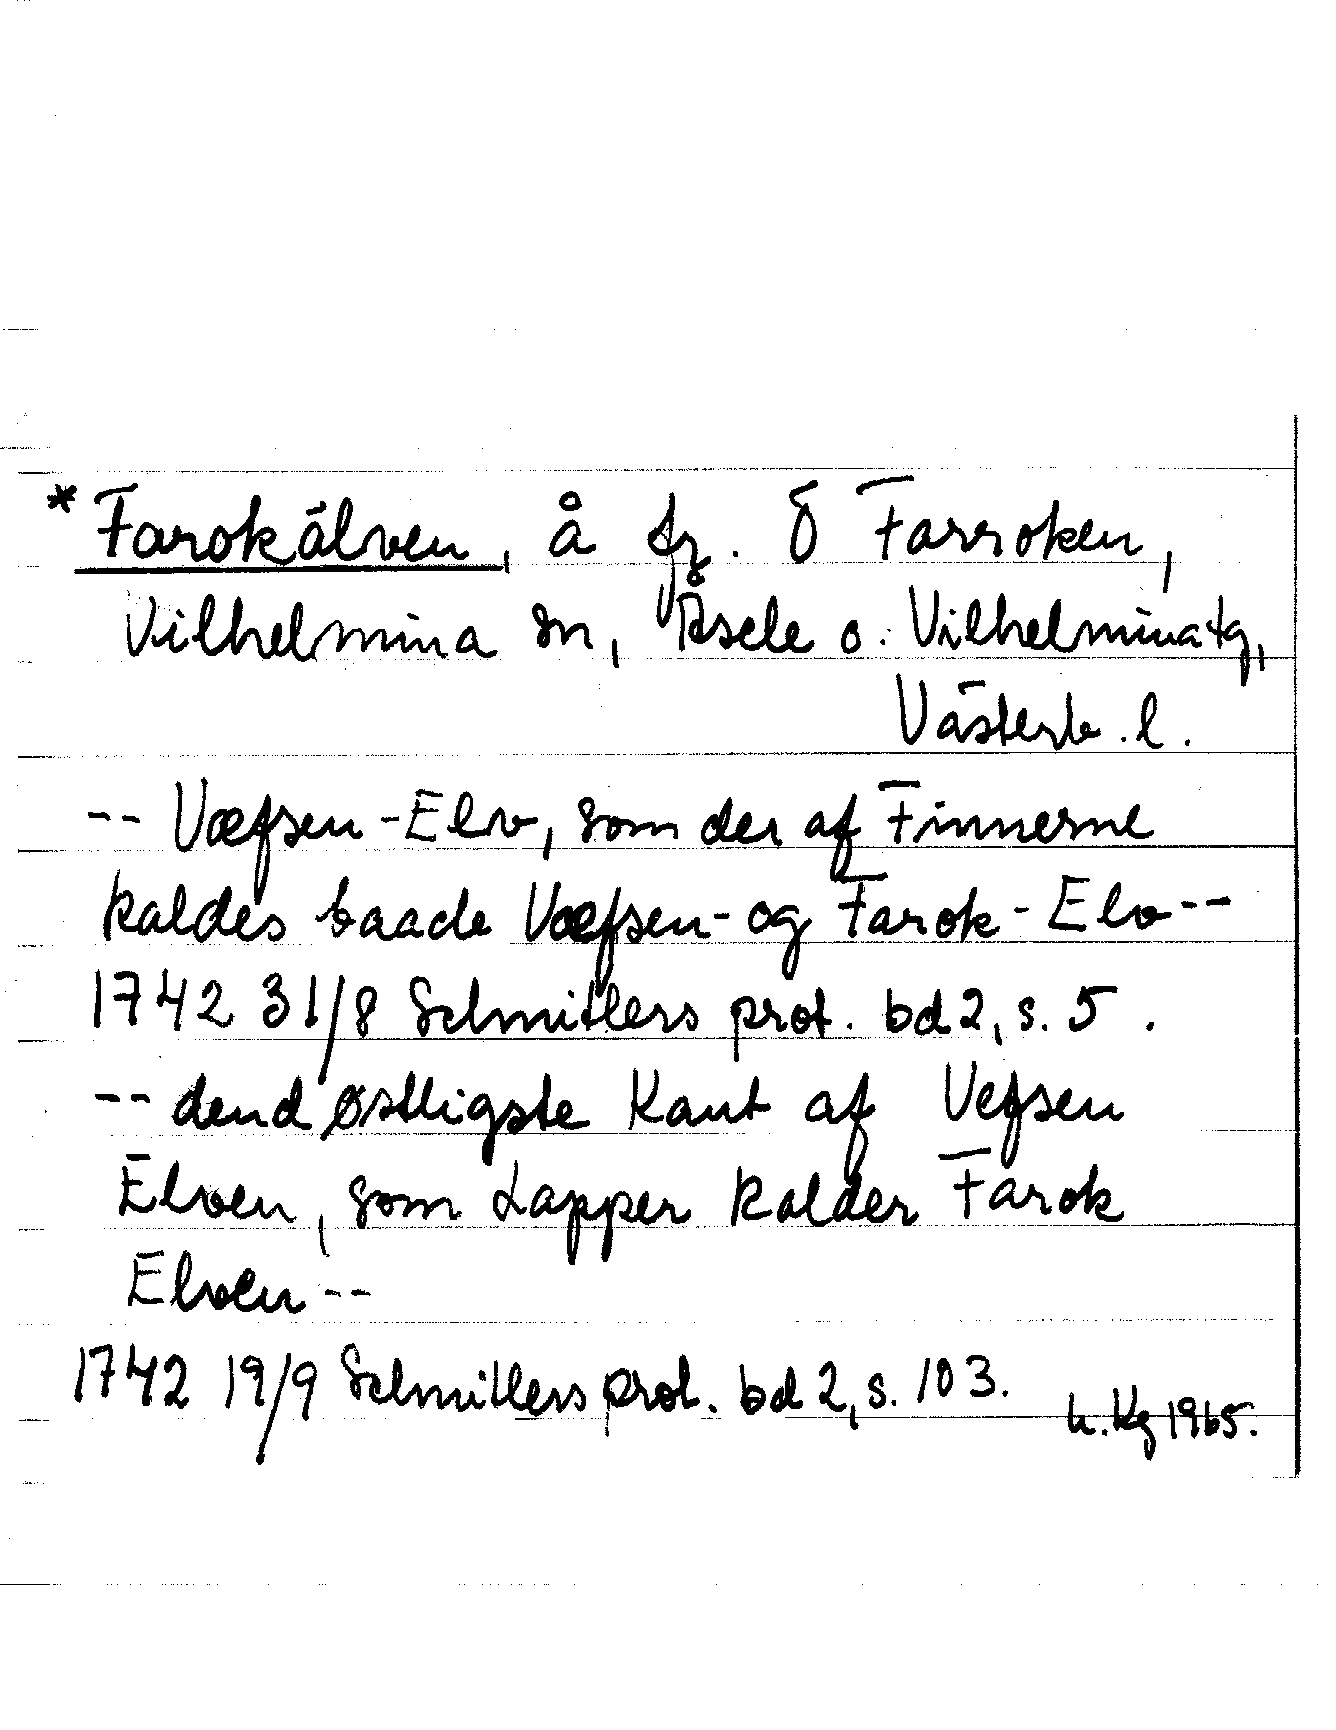 *Farokälven, å fr. Ö Farroken,
Vilhelmina sn, Åsele o. Vilhelmina tg,
Västerb. l.
-- Væfsen-Elv, som der af Finnerne
kaldes baade Væfsen- og Farok-Elv--
1742 31/8 Schnitlers prot. bd 2, s. 5.
-- dend østligste Kant af Vefsen
Elven, som Lapper kalder Farok
Elven --
1742 19/9 Schnitlers prot. bd 2, s. 103.
Kg 1965.